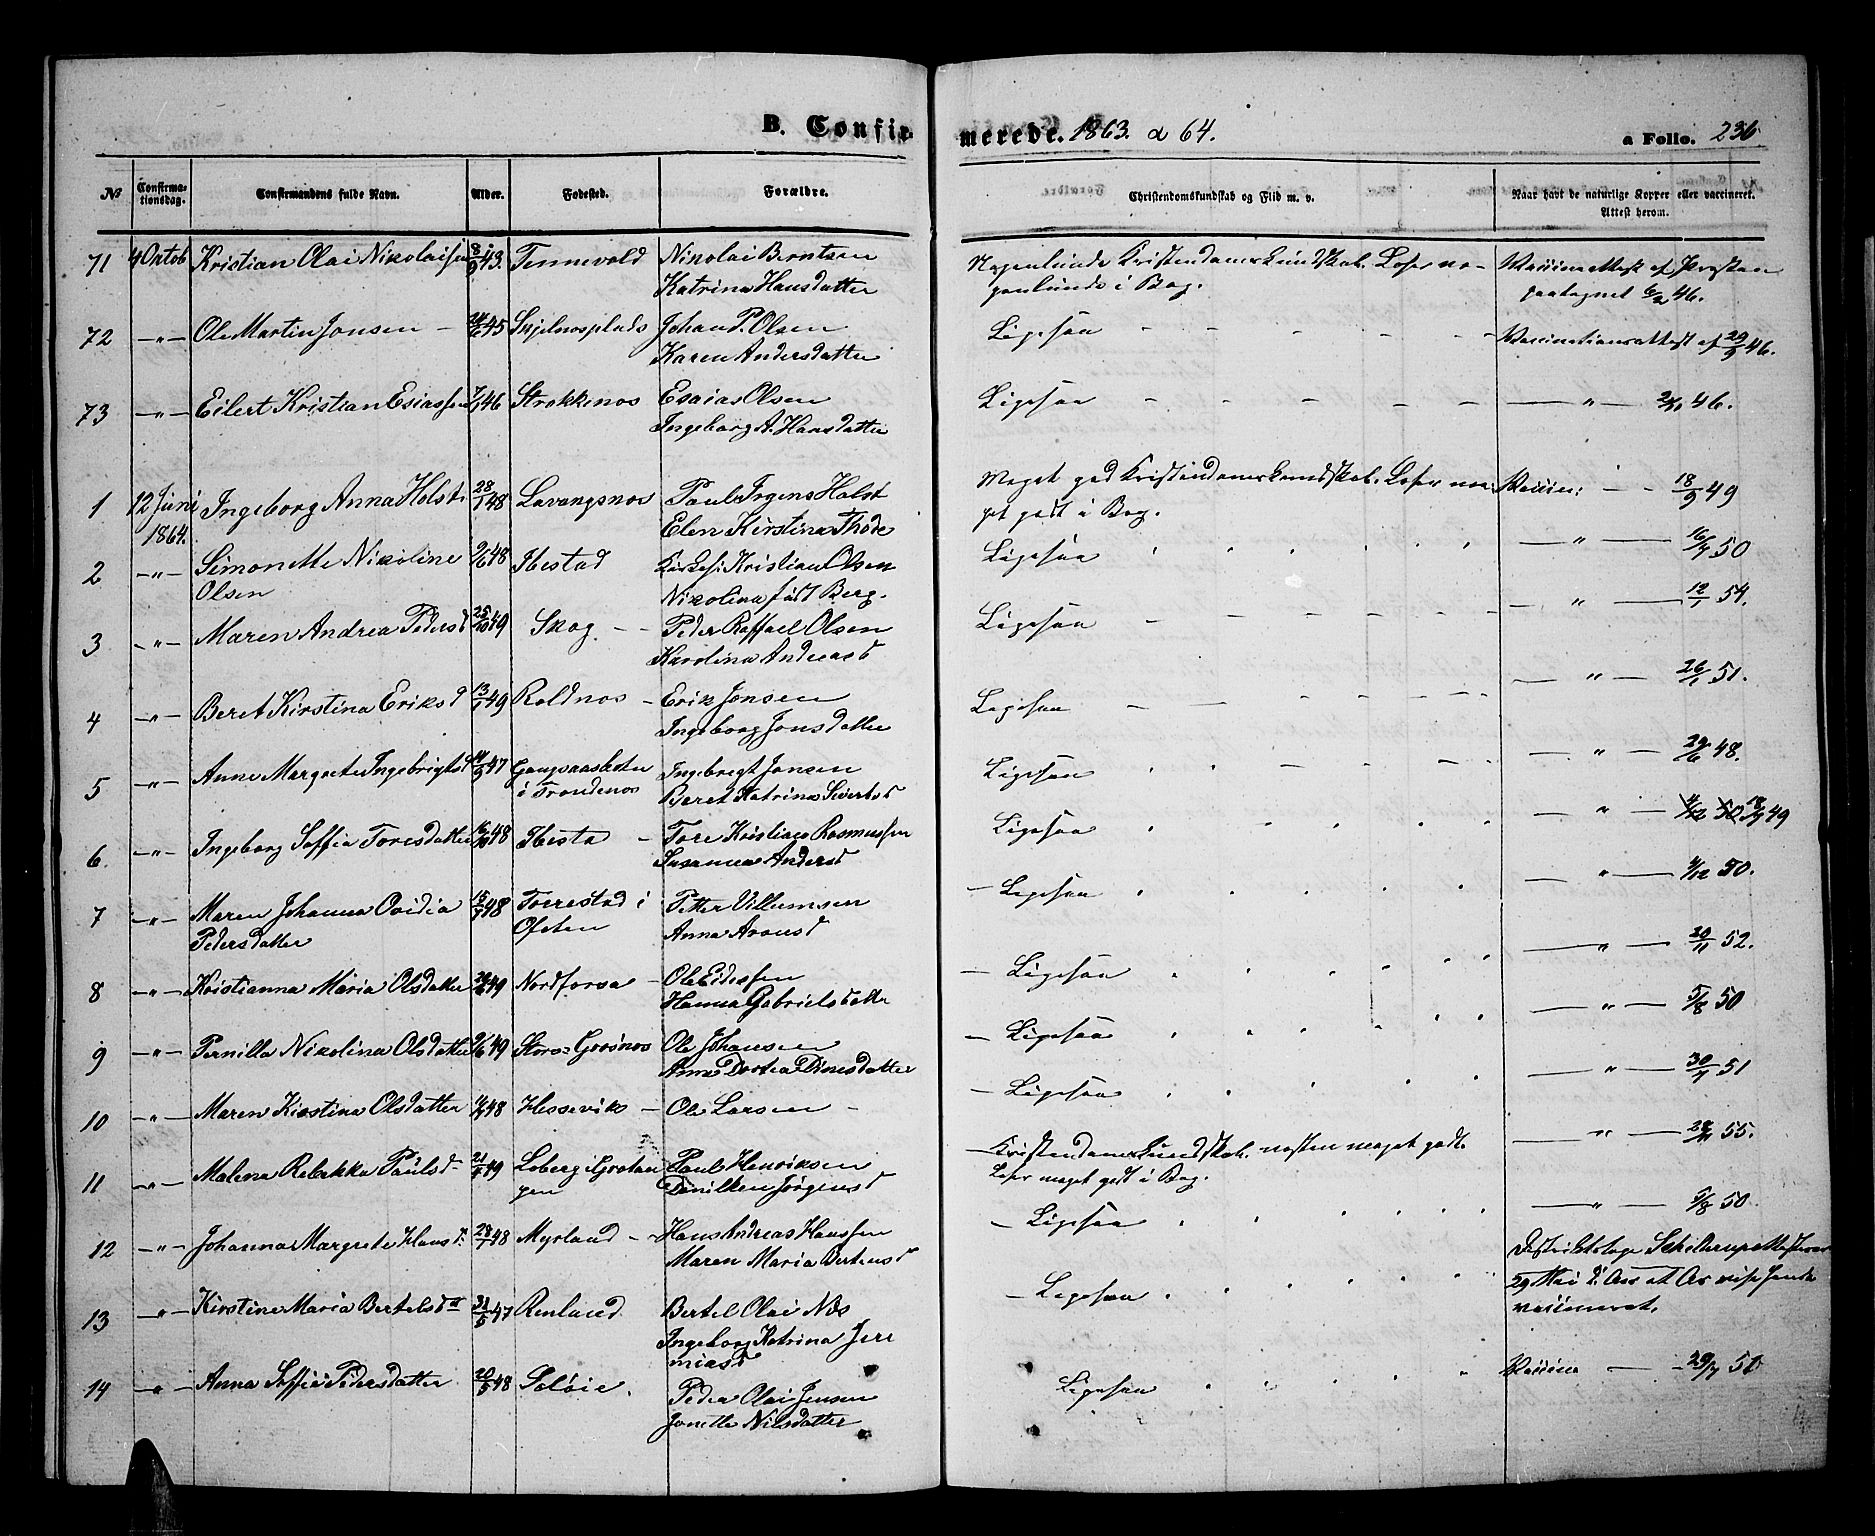 B. Confir-
merede. 1863. & 64.
a Folio. 236
№ Confirma-
tionsdag. Confirmandens fulde Navn. Alder. Fødested. Forældre. Christendomskundskab og Flid m. v. Naar havt de naturlige Kopper eller vaccineret.
Attest herom.
71 4 Oktob Kristian Olai Nikolaisen 8/9 43. Tennevold Nikolai Berntsen Nogenlunde Kristendomskundskab. Læser no- Vaccineattest af Presten
Katrina Hansdatter genlunde i Bog. paategnet 6/2 46.
72 -"- Ole Martin Jonsen 45 Johan P. Olsen Ligesaa - - - - - Vaccinationsattest af 29/9 46.
Karen Andersdatter
73 -"- Eilert Kristian Esiassen 7/1 46 Strokkenes Esaias Olsen Ligesaa - - - - - " - 46.
Ingeborg A. Hansdatter
1 12 Juni Ingeborg Anna Holst 28/1 48 Lavangsnes Paul Irgens Holst Meget god Kristendomskundskab. Læser me- Vaccin: - - 18/9 49
1864. Elen Kirstina Thode get godt i Bog.
2 -"- Simonette Nikoline 9/6 48 Ibestad Kirkes: Kristian Olsen Ligesaa " - 16/7 50
Olsen Nikolina født Berg.
3 -"- Maren Andrea Pedersd 25/10 49 Skog - - Peder Raffael Olsen Ligesaa - " - 12/1 54.
Karolina Andreasd
4 -"- Beret Kirstina Eriksd 13/1 49 Roldnes - Erik Jonsen Ligesaa - " - 26/1 51.
Ingeborg Jonsdatter
5 -"- Anne Margrete Ingebrigtsd 47 Ingebregt Jonsen Ligesaa - " - 29/6 48.
i Trondenes Beret Katrina Sivertsd
6. -"- Ingeborg Soffia Toresdatter 48 Ibesta - Tore Kristian Rasmussen Ligesaa " - 4/12 50 49
Susanna Andersd
7 -"- Maren Johanna Ovidia 15/7 48 Torrestad i Petter Villumsen - Ligesaa - " - 4/12 50.
Pedersdatter Ofoten Anna Aronsd
8 -"- Kristianna Maria Olsdatter 49 Nordforsa - Ole Eidessen - Ligesaa - " - 20/11 52.
Hanna Gabrielsdatter
9 -"- Pernilla Nikolina Olsdatter 9/6 49 Store- Ole Johansen - Ligesaa - " - 5/8 50
Anna Dortea Dinesdatter
10 -"- Maren Kirstina Olsdatter 48 Hesseviks - Ole Larsen - - Ligesaa - " - 30/7 51
11 -"- Malena Rebakka Paulsd - 21/5 49 Løberg i Gratan Paul Henriksen - Kristendomskundskab. næsten meget godt. - " - 55.
gen Danilken Jørgensd Læser meget godt i Bog.
12 -"- Johanna Margrete Hansd. 28/7 48 Myrland - Hans Andreas Hanssen - Ligesaa - " - 5/8 50
Maren Maria Bertensd Distriktslæge attesterer
13 " - Kirstine Maria Bertelsdtt 47 Renland Bertel Olai Næs - Ligesaa 29 Mai
Ingeborg Katrina Jere vaccineret.
miasd
14 " Anna Soffie Pedersdatter 20/5 48 Peder Olai Jensen Ligesaa Vaccine - 29/7 51
Jonette Nilsdatter